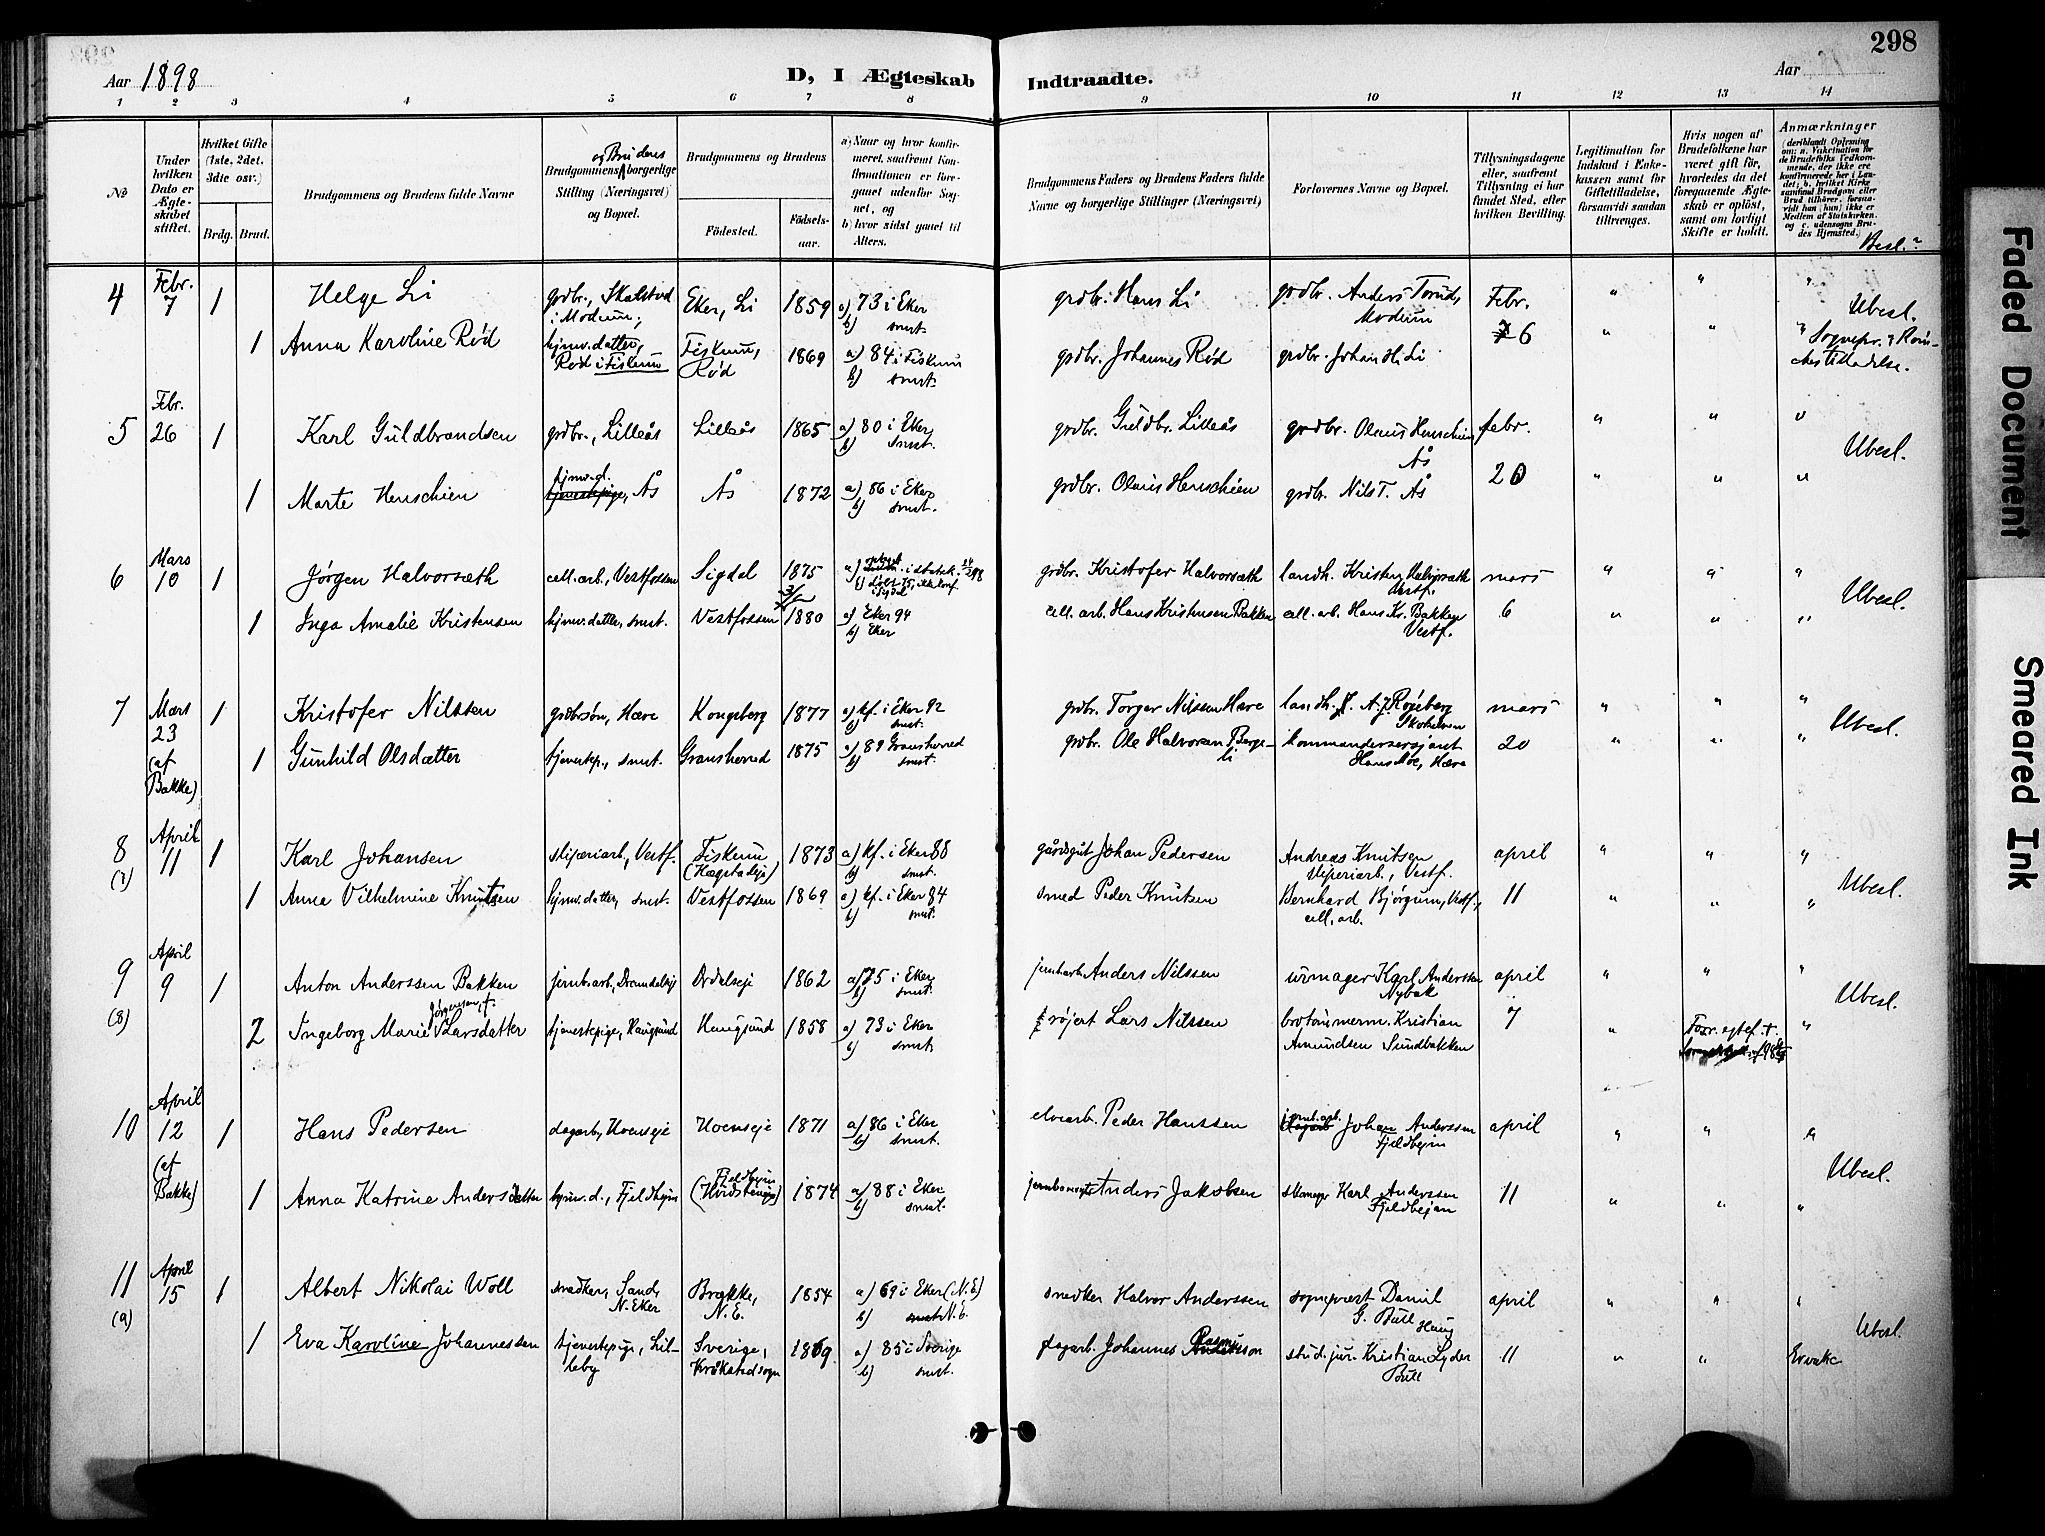 298
Aar 1898
D, I Ægteskab Indtraadte.
Aar
1 2 3 4 5 6 7 8 9 10 11 12 13 14
№
Under hvilken Dato er Ægteskabet stiftet.
Hvilket Gifte (1ste, 2det, 3die osv.)
Brdg. Brud.
Brudgommens og Brudens fulde Navne
Brudgommens og Brudens borgerlige Stilling (Næringsvei) og Bopæl.
Brudgommens og Brudens
Födested.
Födselsaar.
a) Naar og hvor konfirmeret, saafremt Konfirmationen er foregaaet udenfor Sognet, og
b) hvor sidst gaaet til Alters.
Brudgommens Faders og Brudens Faders fulde Navne og borgerlige Stillinger (Næringsvei)
Forlovernes Navne og Bopæl.
Tillysningsdagene eller, saafremt Tillysning ei har fundet Sted, efter hvilken Bevilling.
Legitimation for Indskud i Enkekassen samt for Giftetilladelse, forsaavidt saadan tiltrænges.
Hvis nogen af Brudefolkene har været gift för, hvorledes da det foregaaende Ægteskab er oplöst, samt om lovligt Skifte er holdt.
Anmærkninger (deriblandt Oplysning om: a. Vakcination for de Brudefolks Vedkommende, der ikke ere konfirmerede her i Landet; b. hvilket Kirkesamfund Brudgom eller Brud tilhörer, forsaavidt han (hun) ikke er Medlem af Statskirken. og c. udensogns Brudes Hjemsted.)
Besl.?
4 Febr. 7 1 Helge Li grdbr., Skalstad i Modum; Eker, Li 1859 a) 73 i Eker b) smst. grdbr. Hans Li grdbr. Anders Torud, Modum Febr. " " " Ubesl.
1 Anna Karoline Rød hjmv. datter, Rød i Fiskum Fiskum, Rød 1869 a) 84 i Fiskum b) smst. grdbr. Johannes Rød grdbr. Johan H. Li 6 " " " Sognepr.
5 Febr. 26 1 Karl Guldbrandsen grdbr., Lilleås Lilleås 1865 a) 80 i Eker b) smst. grdbr. Guldbr. Lilleås grdbr. Olaus Henschien Ås febr. " " " Ubesl.
1 Marte Henschien hjmv. d. tjenestepige, Ås Ås 1872 a) 86 i Eker b) smst. grdbr. Olaus Henschien grdbr. Nils T. Ås 20 " " "
6 Mars 10 1 Jørgen Halvorsæth cell. arb., Vestfossen Sigdal 1875 a) b) grdbr. Kristofer Halvorsæth landh. Kristen Halvorsæth Vestf. mars " " " Ubesl.
1 Inga Amalie Kristensen hjmv. datter, smst. Vestfossen 1880 a) Eker 94 b) Eker cell. arb. Hans Kristensen Bakken cell. arb. Hans Kr. Bakken Vestf. 6 " " "
7 Mars 23 (af Bakke) 1 Kristofer Nilssen grdbrsøn, Hære Kongsberg 1877 a) kf. i Eker 92 b) smst. grdbr. Torger Nilssen Hære landh. A. Røseberg mars " " " Ubesl.
1 Gunhild Olsdatter tjenestep., smst. Gransherred 1875 a) 89 Gransherred b) smst. grdbr. Ole Halvorsen Bergeli kommandersersjant Hans Moe, Hære 20 " " "
8 (7) April 11 1 Karl Johansen sliperiarb., Vestf. Fiskum 1873 a) kf. i Eker 88 b) smst. gårdsgut Johan Pedersen Andreas Knutsen sliperiarb., Vestf. april " " " Ubesl.
1 Anna Vilhelmine Knutsen hjmv. datter, smst. Vestfossen 1869 a) kf. i Eker 84 b) smst. smed Peder Knutsen Bernhard Bjørgum, Vestf., cell. arb. 11 " " "
9 (8) April 9 1 Anton Anderssen Bakken jernb. arb. 1862 a) 75 i Eker b) smst. jernb. arb. Anders Nilssen urmager Karl Anderssen Nybak april " " " Ubesl.
2 Ingeborg Marie Jørgensen, f. Larsdatter tjenestepige, Haugsund Haugsund 1858 a) 73 i Eker b) smst. Lars Nilssen brotømmerm. Kristian Amundsen Sundbakken 7 " Forr. egtef. † "
10 April 12 (af Bakke) 1 Hans Pedersen dagarb., Hoenseje Hoenseje 1871 a) 86 i Eker b) smst. elvearb. Peder Hanssen jernb. arb. Johan Anderssen Fjeldhejm april " " " Ubesl.
1 Anna Katrine Andersdatter hjmv. d., Fjeldhejm Fjeldhejm 1874 a) 88 i Eker b) smst. Anders Jakobsen skomager Karl Anderssen Fjeldhejm 11 " " "
11 (9) April 15 1 Albert Nikolai Woll snedker, Sand, N. Eker Brække, N. E. 1854 a) 69 i Eker (N. E.) b) N. E. snedker Halvor Anderssen sogneprest Daniel G. Bull Haug april " " " Ubesl.
1 Eva Karoline Johannessen tjenestepige, Lilleby Sverige, 1869 a) 85 i Sverige b) smst. dagarb. Johannes stud. jur. Kristian Lyder Bull 11 " "
Faded Document
Smeared Ink